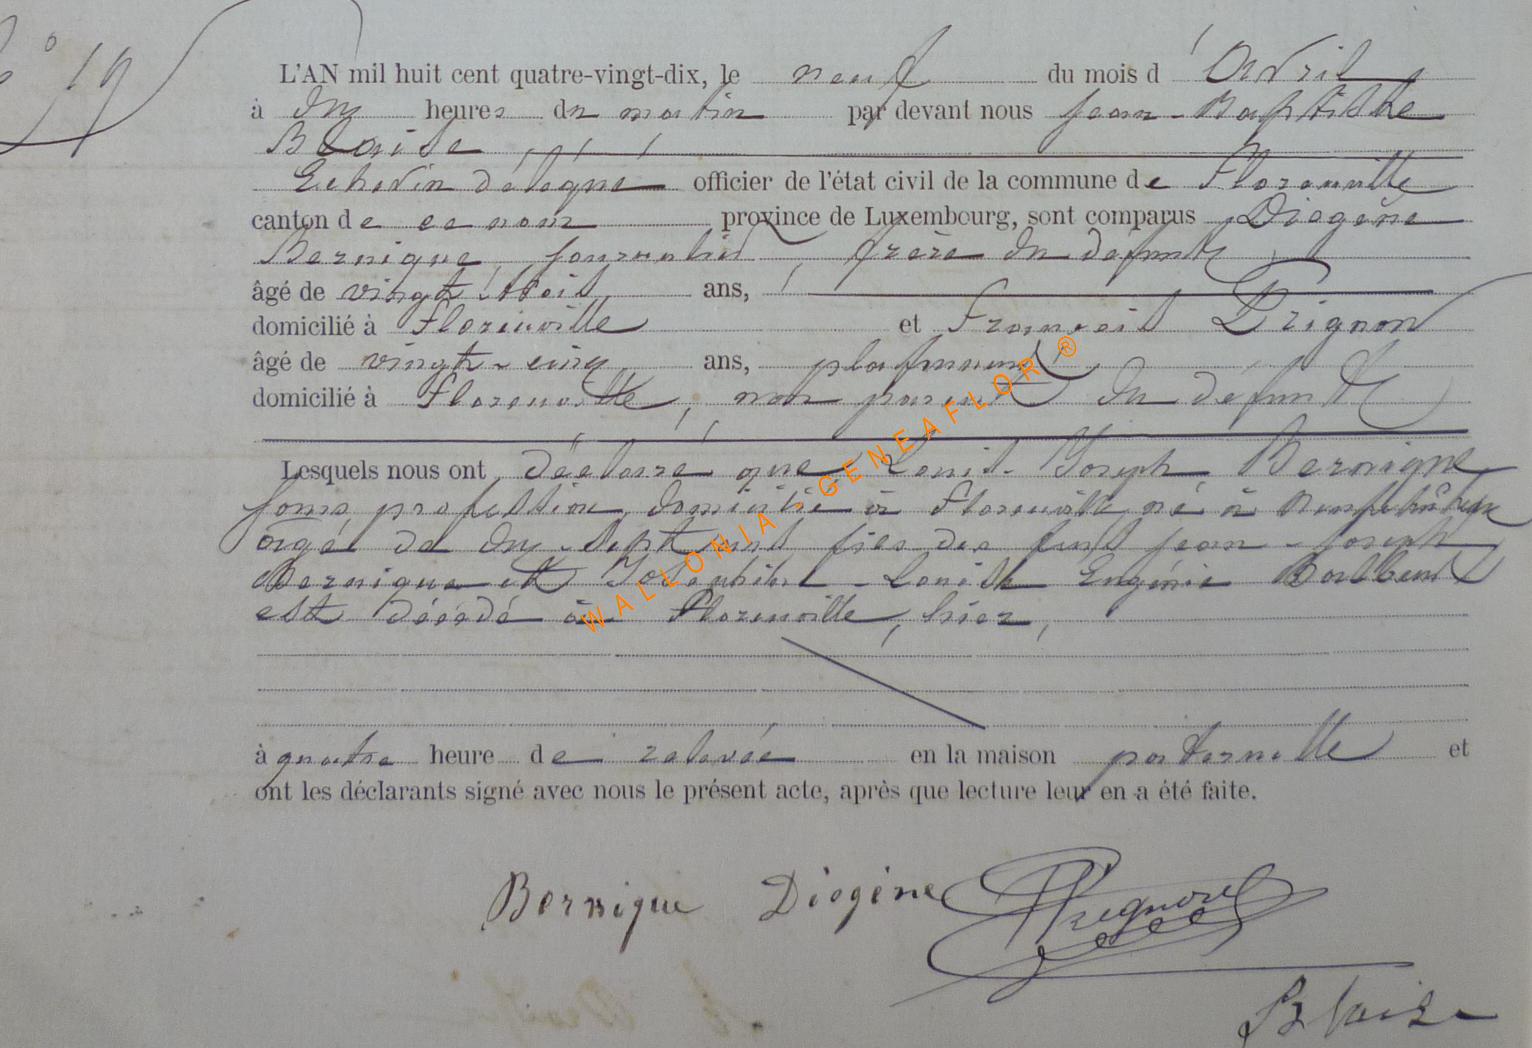 N° 19
L'AN mil huit cent quatre-vingt-dix, le neuf du mois d'Avril
à dix heures du matin par devant nous Jean-Baptiste
Blaise
Echevin délégué officier de l'état civil de la commune de Florenville
canton de ce nom province de Luxembourg, sont comparus Diogène
Bernique, journalier, frère du défunt,
âgé de vingt-trois ans,
domicilié à Florenville et François Prignon
âgé de vingt-cinq ans, plafonneur
domicilié à Florenville, non parent du défunt
Lesquels nous ont déclaré que Louis-Joseph Bernique
sans profession, domicilié à Florenville né à Neufchâteau
âgé de dix-sept ans fils des feus Jean-Joseph
Bernique et Louise Eugénie
est décédé à Florenville, hier,
à quatre heure de relevée en la maison paternelle et
ont les déclarants signé avec nous le présent acte, après que lecture leur en a été faite.
Bernique Diogène Prignon
Blaise
WALLONIA GENEAFLOR ®